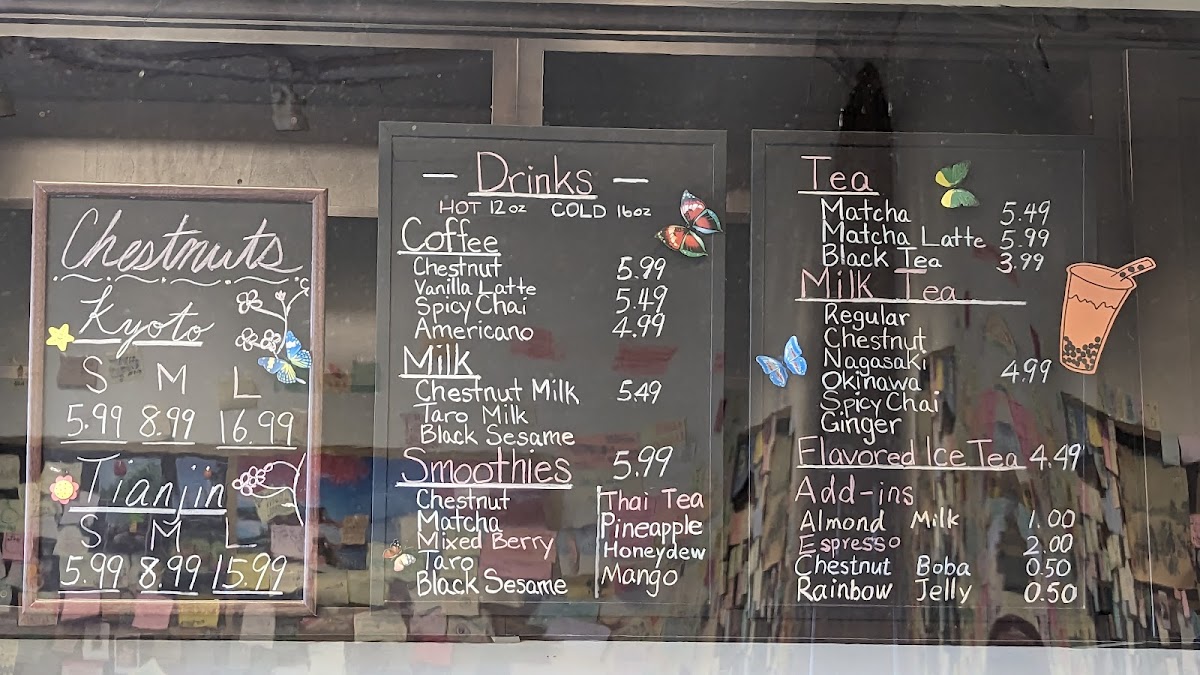 Chestnuts
Kyoto
S M L
5.99 8.99 16.99
Tianjin
S M L
5.99 8.99 15.99
— Drinks —
HOT 12oz COLD 16oz
Coffee
Chestnut 5.99
Vanilla Latte
Spicy Chai 5.49
Americano 4.99
Milk
Chestnut Milk 5.49
Taro Milk
Black Sesame
Smoothies 5.99
Chestnut Thai Tea
Matcha Pineapple
Mixed Berry Honeydew
Taro Mango
Black Sesame
Tea
Matcha 5.49
Matcha Latte 5.99
Black Tea 3.99
Milk Tea
Regular
Chestnut
Nagasaki
Okinawa 4.99
Spicy Chai
Ginger
Flavored Ice Tea 4.49
Add-ins
Almond Milk 1.00
Espresso 2.00
Chestnut Boba 0.50
Rainbow Jelly 0.50